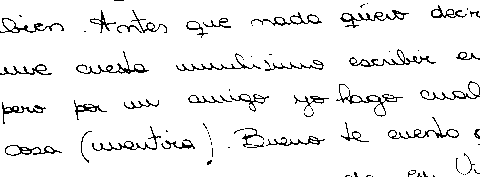 bien. Antes que nada quiero decir
me cuesta muchisimo escribir e
pero por un amigo yo hago cual
cosa (mentira). Bueno te cuento q